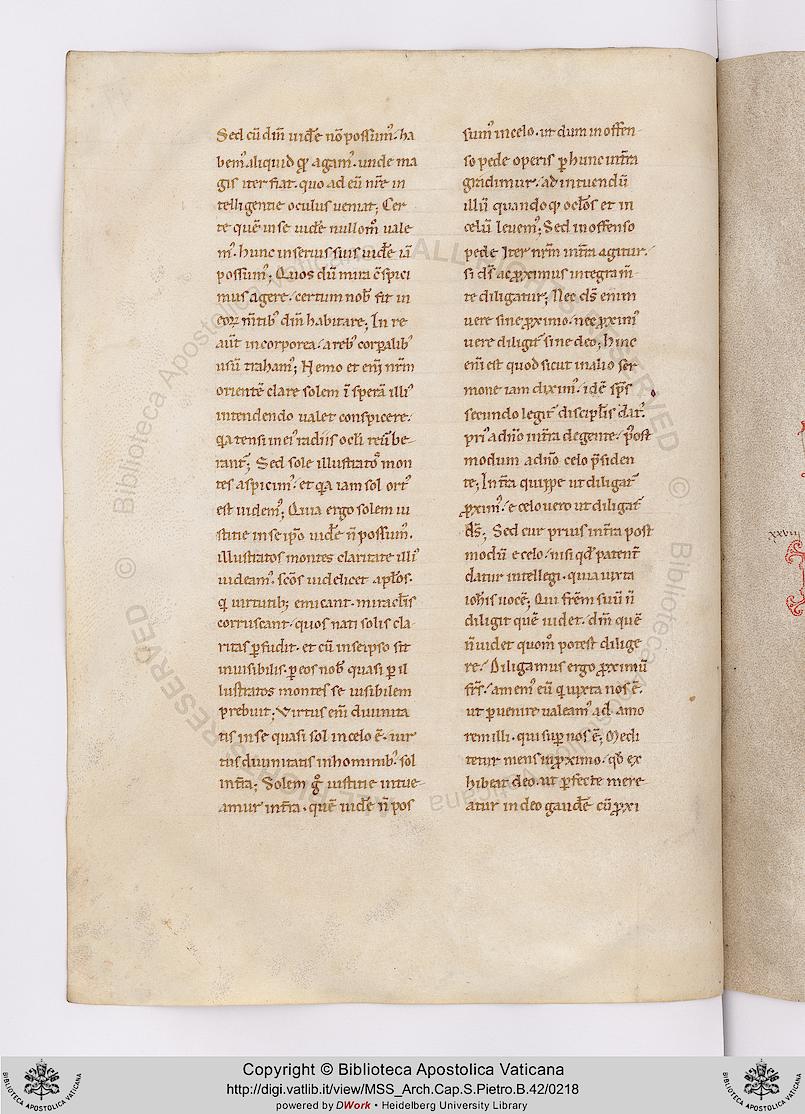 Sed cū dm̄ uid̄e nō possum᷒. ha
bem᷒ aliquid qđ agam᷒. unde ma
gis iter fiat. quo ad eū nr̄e in
telligentie oculus ueniat; Cer
te quē in se uid̄e nullom̄ uale
m᷒. hunc in seruis suis uid̄e iā
possum᷒; Quos dū mira c̄spici
mus agere. certum nob̄ fit in
eoꝝ m̄tib᷒ dm̄ habitare; In re
aūt incorporea. a reb᷒ corꝑalib᷒
usū traham᷒; Nemo et eni nr̄m
orientē clare solem ī sperā illi᷒
intendendo ualet conspicere.
qa tensi in ei᷒ radiis ocl̄i reūbe
rant᷒; Sed sole illustrato᷒ mon
tes aspicim᷒. et qa iam sol ort᷒
est uidem᷒; Quia ergo solem iu
stitie in se ip̄o uid̄e n̄ possum᷒.
illustratos montes claritate illi᷒
uideam᷒. sc̄os uidelicet apl̄os.
q uirtutib; emicant. miracl̄is
corruscant. quos nati solis cla
ritas ꝑfudit. et cū in seipso sit
inuisibilis. ꝑ eos nob̄ quasi ꝑ il
lustratos montes se uisibilem
prebuit; Virtus eni diuinita
tis in se quasi sol in celo ē. uir
tus diuinitatis in hominib᷒. sol
in tr̄a; Solem g° iustitie intue
amur in tr̄a. quē uid̄e n̄ pos
sum᷒ in celo. ut dum inoffen
so pede operis ꝑ hunc in tr̄a
gradimur. ad intuendū
illū quandoq ocl̄os et in
celū leuem᷒; Sed inoffenso
pede Iter nr̄m in tr̄a agitur.
si ds̄ ac ꝓximus integra m̄
te diligatur; Nec ds̄ enim
uere sine ꝓximo. nec ꝓxim᷒
uere diligit᷒ sine deo; hinc
eni est quod sicut in alio ser
mone iam dixim᷒. idē sp̄s
secundo legit᷒ discipl̄is dat᷒.
pri᷒ a dn̄o in tr̄a degente. post
modum a dn̄o celo p̄siden
te; In tr̄a quippe ut diligat᷒
ꝓxim᷒. e celo uero ut diligat᷒
ds̄; Sed cur prius in tr̄a post
modū e celo. nisi qđ patent᷒
datur intellegi. quia iuxta
ioh̄is uocē; Qui fr̄em suū n̄
diligit quē uidet. dm̄ quē
n̄ uidet quom̄ potest dilige
re. Diligamus ergo ꝓximū
fr̄s. amem᷒ eū q iuxta nos ē.
ut ꝑuenire ualeam᷒ ad amo
rem illi᷒. qui suꝑ nos ē; Medi
tetur mens in ꝓximo. qđ ex
hibeat deo. ut ꝑfecte mere
atur in deo gaud̄e cū ꝓxi
xxxiiii
Copyright © Biblioteca Apostolica Vaticana
http://digi.vatlib.it/view/MSS_Arch.Cap.S.Pietro.B.42/0218
powered by DWork • Heidelberg University Library